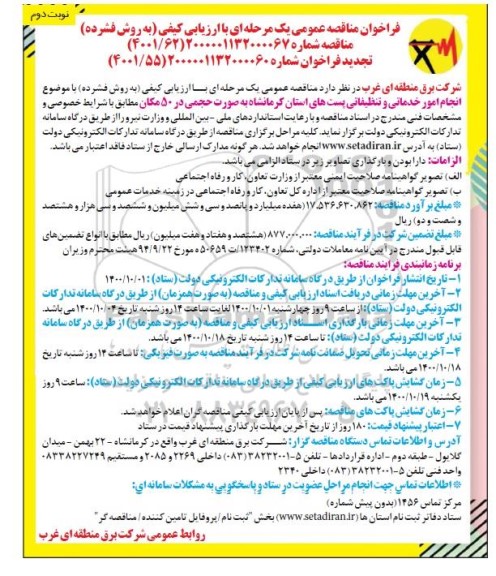 نوبت دوم
فراخوان مناقصه عمومی یک مرحله ای با ارزیابی کیفی (به روش فشرده)
مناقصه شماره ۲۰۰۰۰۰۱۱۳۲۰۰۰۰۶۷ (۴۰۰۱/۶۲)
تجدید فراخوان شماره ۲۰۰۰۰۰۱۱۳۲۰۰۰۰۶۰ (۴۰۰۱/۵۵)
شرکت برق منطقه ای غرب در نظر دارد مناقصه عمومی یک مرحله ای با ارزیابی کیفی (به روش فشرده) با موضوع
انجام امور خدماتی و تنظیفاتی پست های استان کرمانشاه به صورت حجمی در ۵۰ مکان مطابق با شرایط خصوصی و
مشخصات فنی مندرج در اسناد مناقصه و با رعایت استانداردهای ملی - بین المللی و وزارت نیرو را از طریق درگاه سامانه
تدارکات الکترونیکی دولت برگزار نماید. کلیه مراحل برگزاری مناقصه از طریق درگاه سامانه تدارکات الکترونیکی دولت
(ستاد) به آدرس www.setadiran.ir انجام خواهد شد. هر گونه مدارک ارسالی خارج از ستاد فاقد اعتبار می باشد.
الزامات: دارا بودن و بارگذاری تصاویر زیر در ستاد الزامی می باشد.
الف) تصویر گواهینامه صلاحیت ایمنی معتبر از وزارت تعاون، کار و رفاه اجتماعی
ب) تصویر گواهینامه صلاحیت معتبر از اداره کل تعاون، کار و رفاه اجتماعی در زمینه خدمات عمومی
* مبلغ برآورد مناقصه: ۱۷.۵۳۶.۶۳۰.۸۶۲ (هفده میلیارد و پانصد و سی و شش میلیون و ششصد و سی هزار و هشتصد
و شصت و دو) ریال
* مبلغ تضمین شرکت در فرآیند مناقصه: ۸۷۷.۰۰۰.۰۰۰ (هشتصد و هفتاد و هفت میلیون) ریال مطابق با انواع تضمین های
قابل قبول مندرج در آیین نامه معاملات دولتی، شماره ۱۲۳۴۰۲/ت ۵۰۶۵۹ه مورخ ۹۴/۹/۲۲ هیئت محترم وزیران
برنامه زمانبندی فرآیند مناقصه:
۱- تاریخ انتشار فراخوان از طریق درگاه سامانه تدارکات الکترونیکی دولت (ستاد): ۱۴۰۰/۱۰/۰۱
۲- آخرین مهلت زمانی دریافت اسناد ارزیابی کیفی و مناقصه (به صورت همزمان) از طریق درگاه سامانه تدارکات
الکترونیکی دولت (ستاد): از ساعت ۹ روز چهارشنبه ۱۴۰۰/۱۰/۰۱ لغایت ساعت ۱۴ روز شنبه تاریخ ۱۴۰۰/۱۰/۰۴ می باشد.
۳- آخرین مهلت زمانی بارگذاری اسناد ارزیابی کیفی و مناقصه (به صورت همزمان) از طریق درگاه سامانه
تدارکات الکترونیکی دولت (ستاد): تا ساعت ۱۴ روز شنبه تاریخ ۱۴۰۰/۱۰/۱۸ می باشد.
۴- آخرین مهلت زمانی تحویل ضمانت نامه شرکت در فرآیند مناقصه به صورت فیزیکی: تا ساعت ۱۴ روز شنبه تاریخ
۱۴۰۰/۱۰/۱۸ می باشد.
۵- زمان گشایش پاکت های ارزیابی کیفی از طریق درگاه سامانه تدارکات الکترونیکی دولت (ستاد): ساعت ۹ روز
یکشنبه ۱۴۰۰/۱۰/۱۹ می باشد.
۶- زمان گشایش پاکت های مناقصه: پس از پایان ارزیابی کیفی مناقصه گران اعلام خواهد شد.
۷- اعتبار پیشنهاد قیمت: ۱۸۰ روز از تاریخ آخرین مهلت بارگذاری پیشنهاد قیمت در ستاد
آدرس و اطلاعات تماس دستگاه مناقصه گزار: شرکت برق منطقه ای غرب واقع در کرمانشاه - ۲۲ بهمن - میدان
گلایول - طبقه دوم - اداره قراردادها - تلفن ۵-۳۸۲۳۲۰۰۱ (۰۸۳) داخلی ۲۲۶۹ و ۲۰۸۵ و مستقیم ۰۸۳۳۸۲۲۷۲۴۹
واحد فنی تلفن ۵-۳۸۲۳۲۰۰۱ (۰۸۳) داخلی ۲۳۴۰
* اطلاعات تماس جهت انجام مراحل عضویت در ستاد و پاسخگویی به مشکلات سامانه ای:
مرکز تماس ۱۴۵۶ (بدون پیش شماره)
ستاد دفاتر ثبت نام استان ها (www.setadiran.ir) بخش "ثبت نام / پروفایل تامین کننده / مناقصه گر"
روابط عمومی شرکت برق منطقه ای غرب